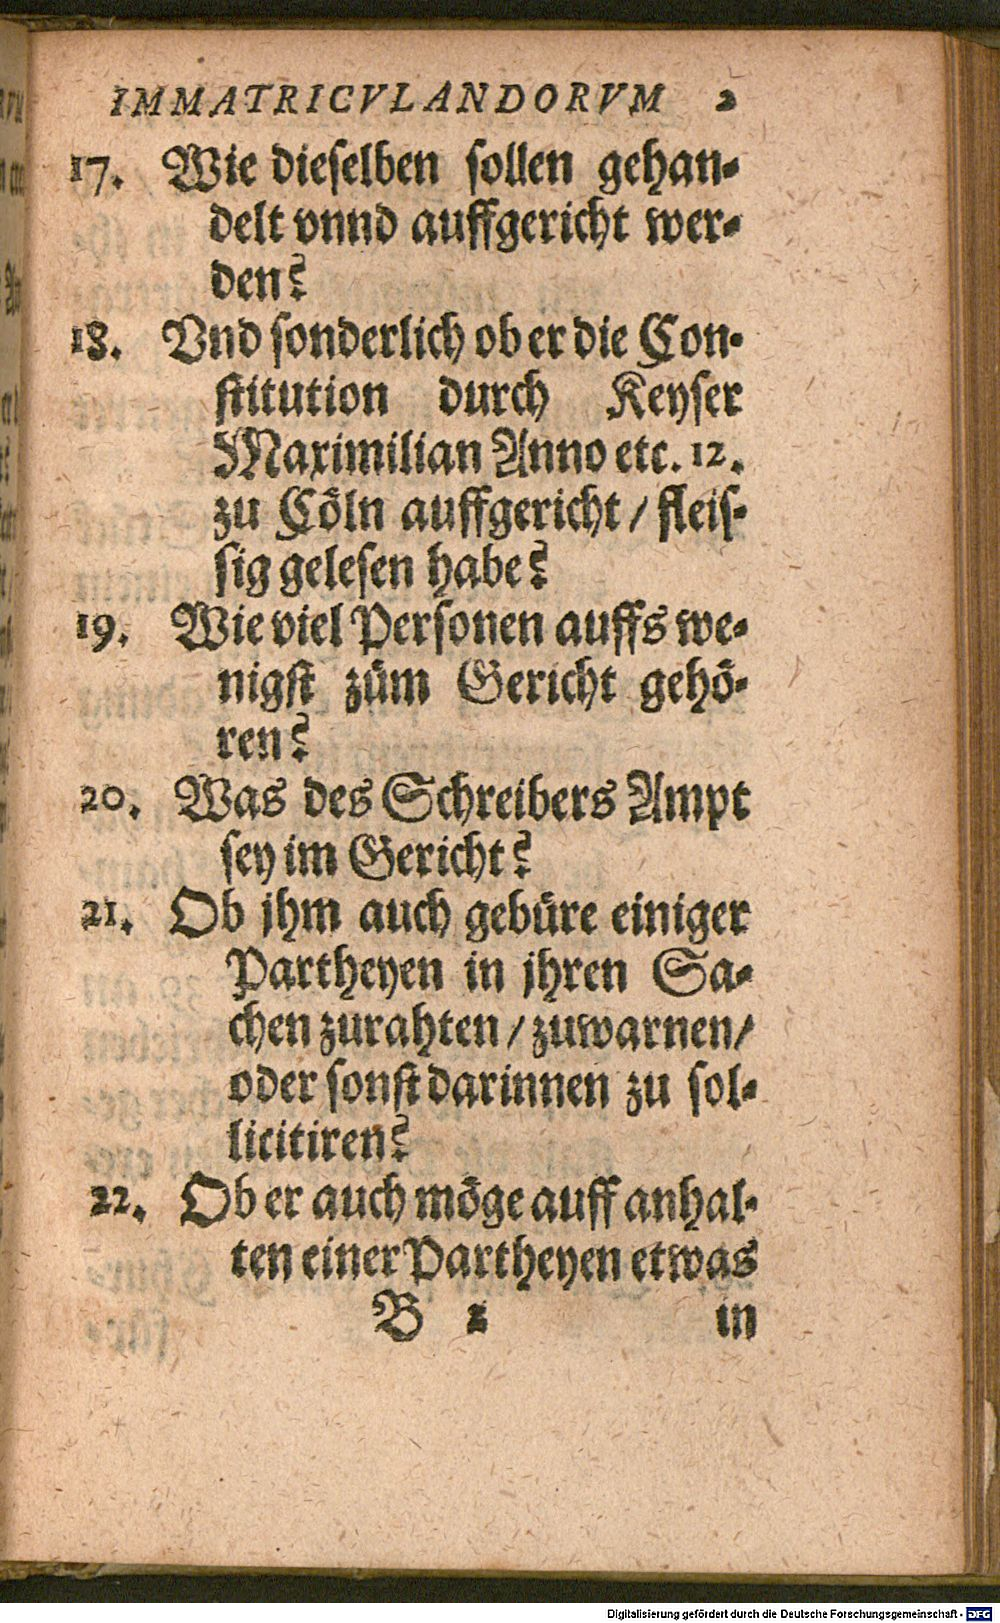 IMMATRICVLANDORVM 2
17. Wie dieselben sollen gehan-
delt vnnd auffgericht wer-
den?
18. Vnd sonderlich ob er die Con-
stitution durch Keyser
Maximilian Anno etc. 12.
zu Cöln auffgericht / fleis-
sig gelesen habe?
19. Wie viel Personen auffs we-
nigst züm Gericht gehö-
ren?
20. Was des Schreibers Ampt
sey im Gericht?
21. Ob jhm auch gebüre einiger
Partheyen in jhren Sa-
chen zurahten / zuwarnen /
oder sonst darinnen zu sol-
licitiren?
22. Ob er auch möge auff anhal-
ten einer Partheyen etwas
B 2 in
Digitalisierung gefördert durch die Deutsche Forschungsgemeinschaft - DFG